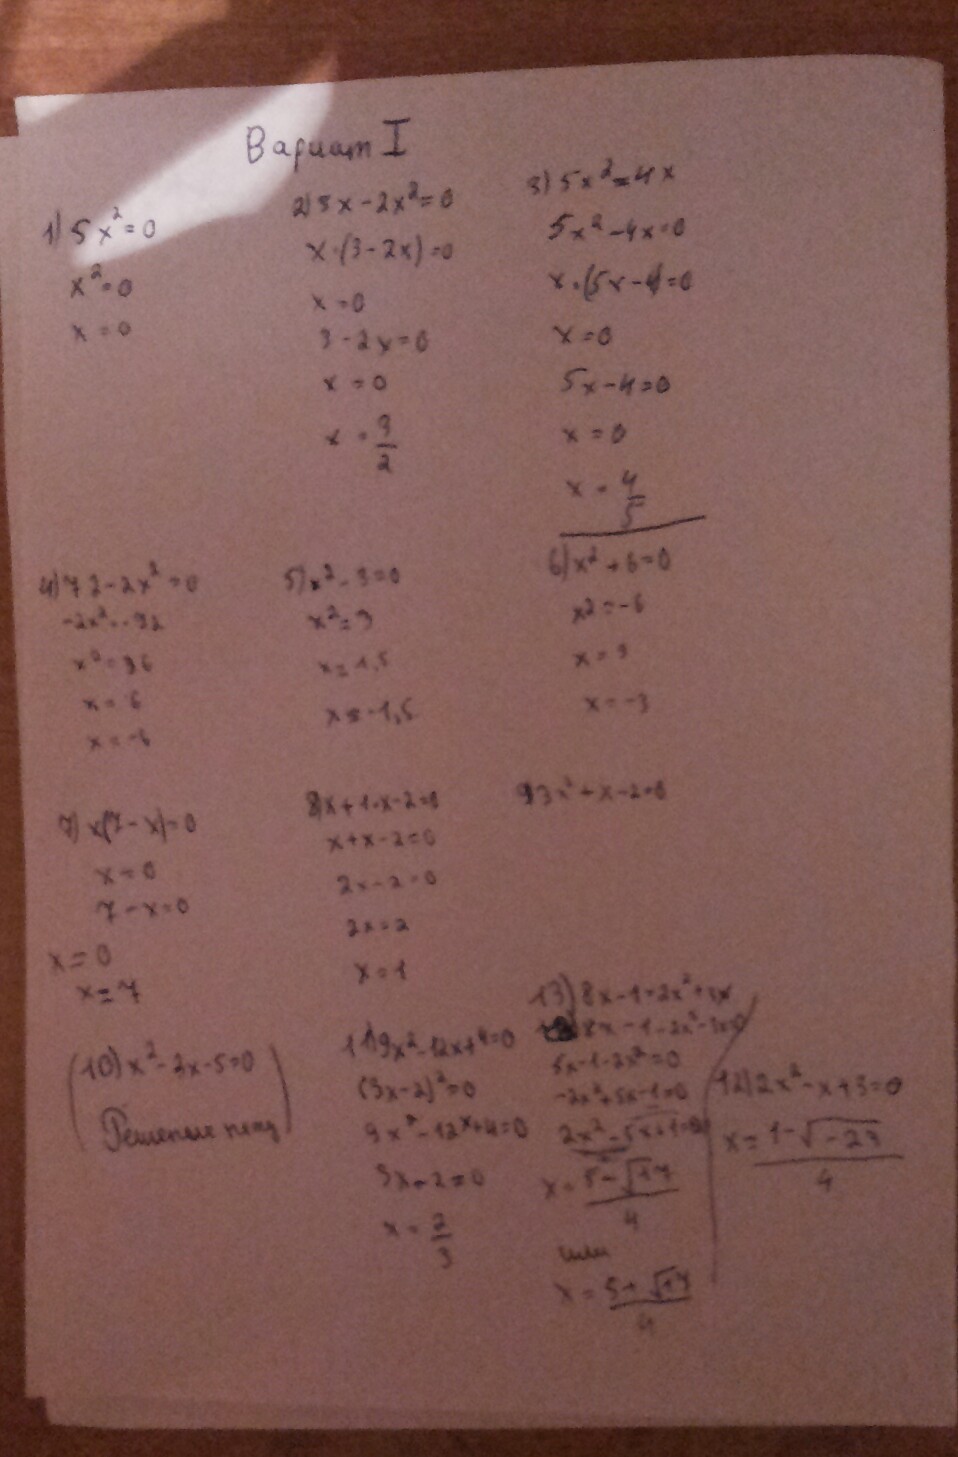 Вариант I
1) 5x²=0
x²=0
x=0
2) 3x-2x²=0
x·(3-2x)=0
x=0
3-2x=0
x=0
x=3/2
3) 5x²=4x
5x²-4x=0
x·(5x-4)=0
x=0
5x-4=0
x=0
x=4/5
4) 72-2x²=0
-2x²=-72
x²=36
x=6
x=-6
5) x²-3=0
x²=3
x=1,5
x=-1,5
6) x²+6=0
x2=-6
x=3
x=-3
7) x(7-x)=0
x=0
7-x=0
x=0
x=7
8) x+1·x-2=0
x+x-2=0
2x-2=0
2x=2
x=1
9) 3x²+x-2=0
(10) x²-2x-5=0
11) 9x²-12x+4=0
(3x-2)²=0
9x²-12x+4=0
3x-2=0
x=2/3
13) 8x-1=2x²+3x
8x-1-2x²-3x=0
5x-1-2x²=0
-2x²+5x-1=0
2x²-5x+1=0
x=(5-√17)/4
или
x=(5+√17)/4
12) 2x²-x+3=0
x=(1-√-23)/4